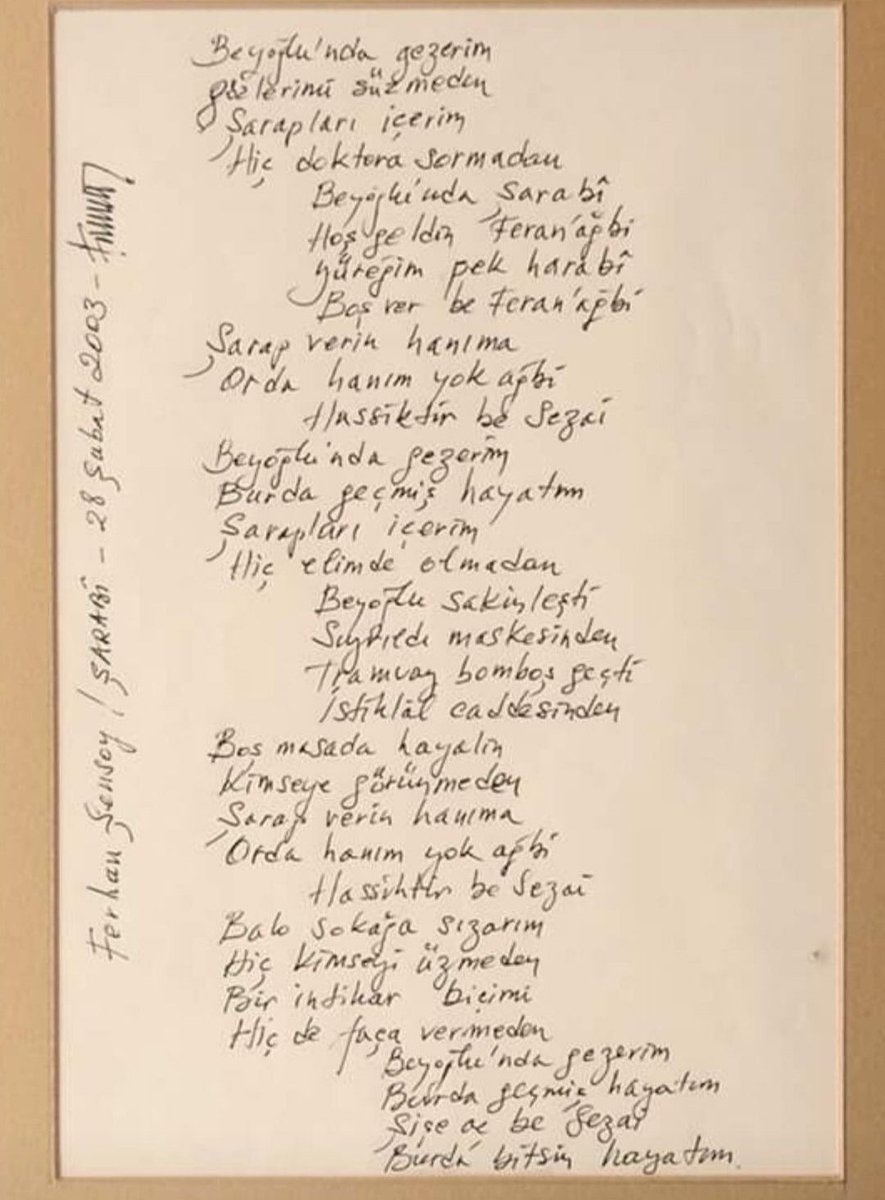 Beyoğlu'nda gezerim
gözlerimi süzmeden
Şarapları içerim
Hiç doktora sormadan
Beyoğlu'nda Şarabî
Hoş geldin Feran'ağbi
yüreğim pek harabî
Boş ver be Feran'ağbi
Şarap verin hanıma
Orda hanım yok ağbi
Hassiktir be Sezai
Beyoğlu'nda gezerim
Burda geçmiş hayatım
Şarapları içerim
Hiç elimde olmadan
Beyoğlu sakinleşti
Sıyrıldı maskesinden
Tramvay bomboş geçti
İstiklâl caddesinden
Boş masada hayalin
Kimseye görünmeden
Şarap verin hanıma
Orda hanım yok ağbi
Hassiktir be Sezai
Balo sokağa sızarım
Hiç kimseyi üzmeden
Bir intihar biçimi
Hiç de faça vermeden
Beyoğlu'nda gezerim
Burda geçmiş hayatım
Şişe aç be Sezai
Burda bitsin hayatım.
Ferhan Şensoy / ŞARABÎ - 28 Şubat 2003 -